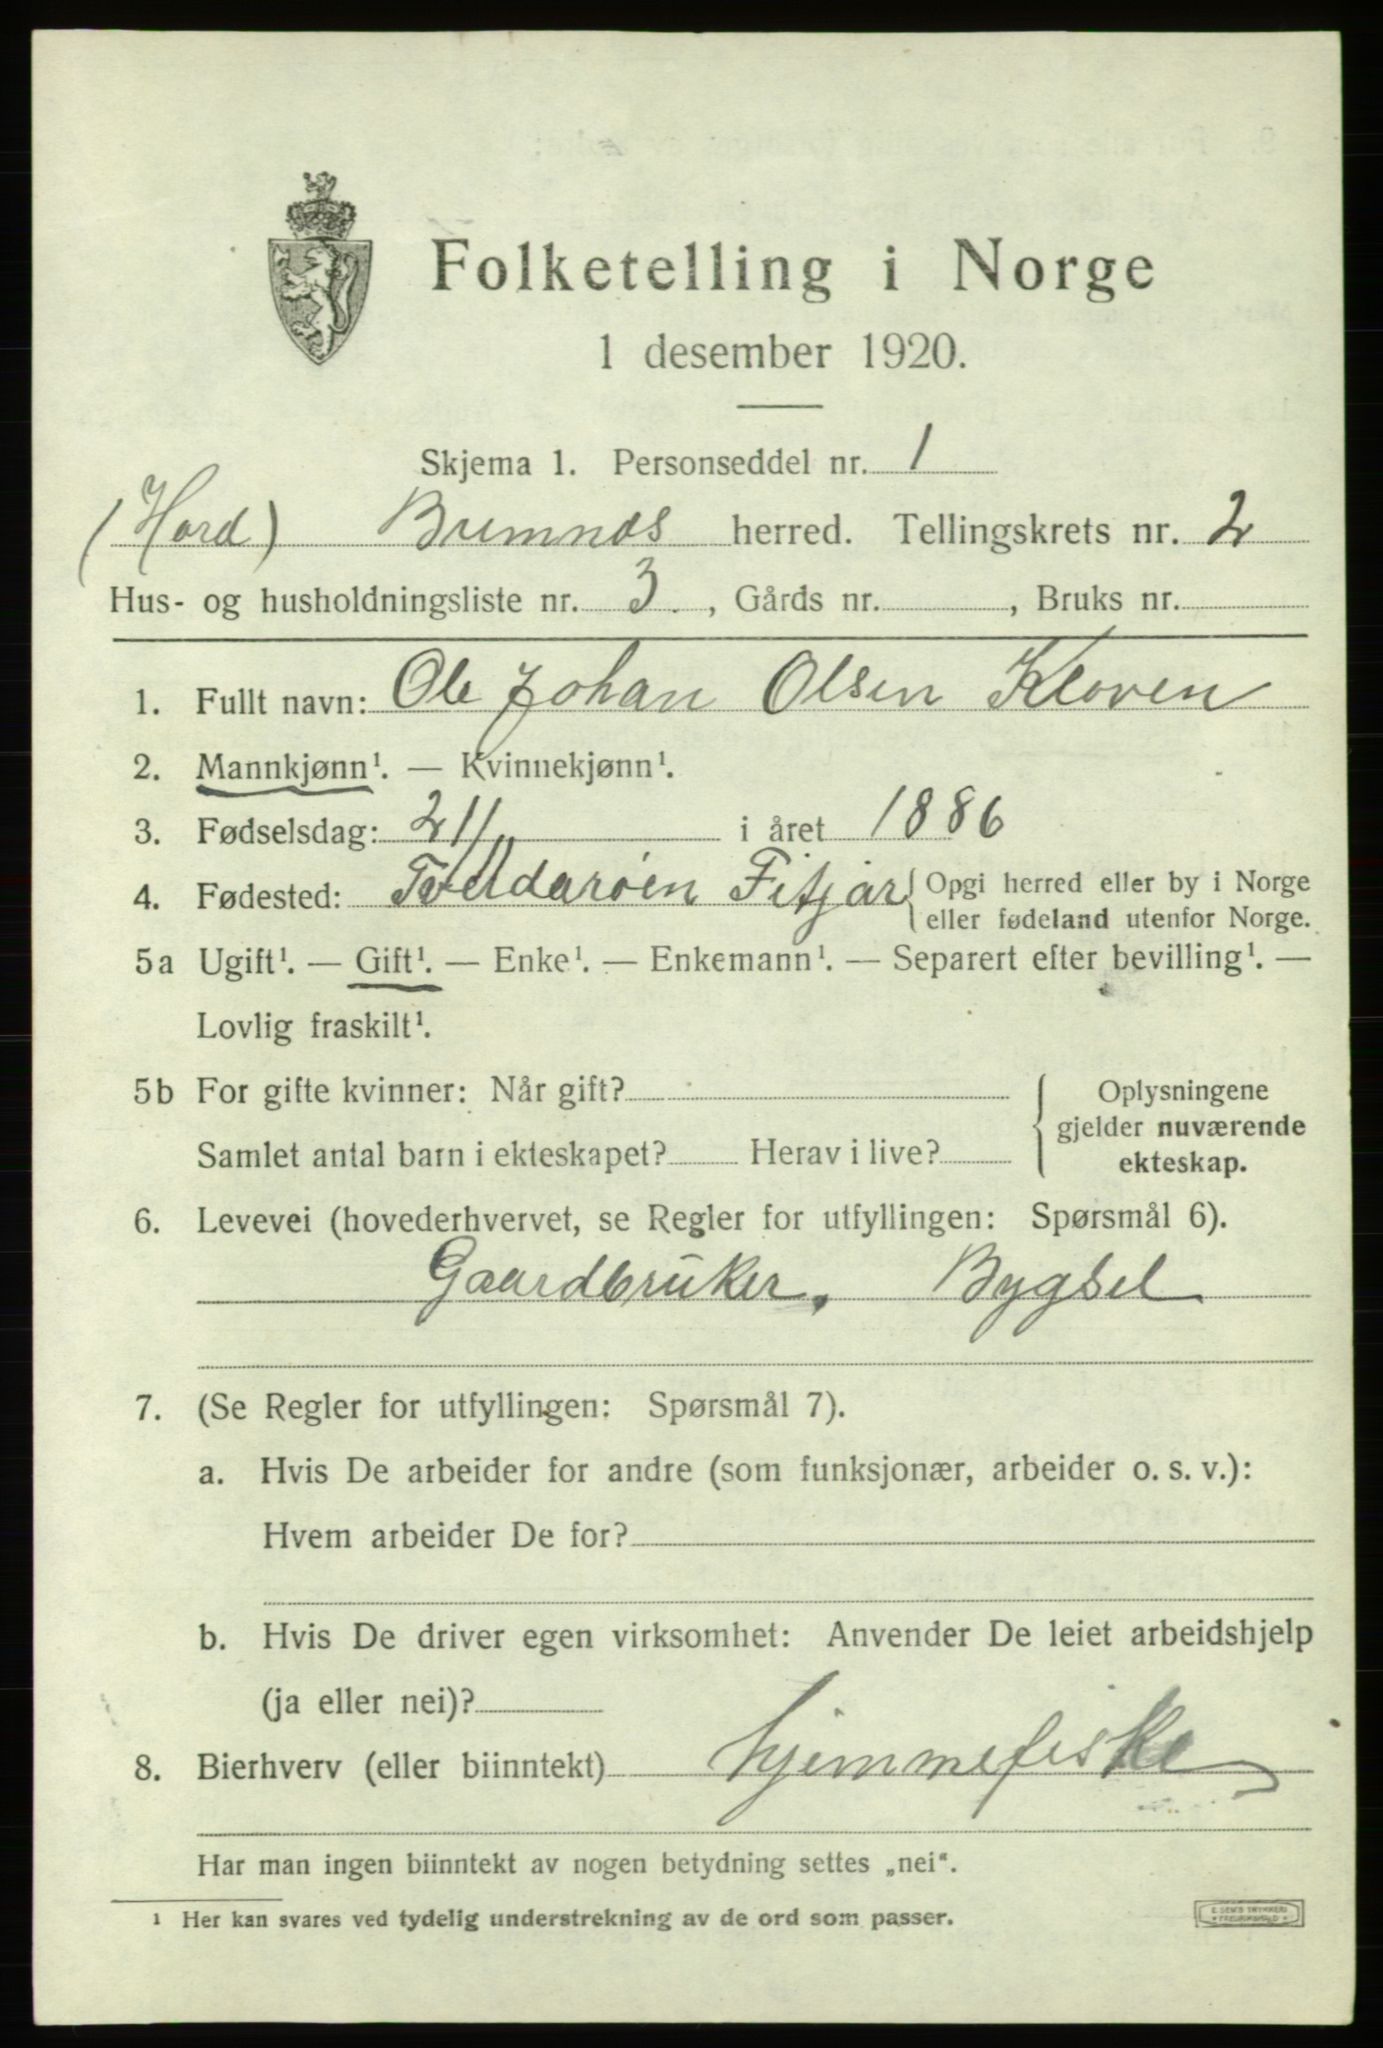 Folketelling i Norge
1 desember 1920.
Skjema 1. Personseddel nr. 1
(Hord) Bremnes herred. Tellingskrets nr. 2
Hus- og husholdningsliste nr. 3. , Gårds nr. , Bruks nr.
1. Fullt navn: Ole Johan Olsen Kloven
2. Mannkjønn¹. — Kvinnekjønn¹.
3. Fødselsdag: i året 1886
4. Fødested: Fitjar { Opgi herred eller by i Norge
eller fødeland utenfor Norge.
5a Ugift¹. — Gift¹. — Enke¹. — Enkemann¹. — Separert efter bevilling¹. —
Lovlig fraskilt¹.
5b For gifte kvinner: Når gift? { Oplysningene
gjelder nuværende
Samlet antal barn i ekteskapet? Herav i live? ekteskap.
6. Levevei (hovederhvervet, se Regler for utfyllingen: Spørsmål 6).
Gaardbruker, Bygsel
7. (Se Regler for utfyllingen: Spørsmål 7).
a. Hvis De arbeider for andre (som funksjonær, arbeider o. s. v.):
Hvem arbeider De for?
b. Hvis De driver egen virksomhet: Anvender De leiet arbeidshjelp
(ja eller nei)?
8. Bierhverv (eller biinntekt) hjemmefiske
Har man ingen biinntekt av nogen betydning settes „nei“.
¹ Her kan svares ved tydelig understrekning av de ord som passer.